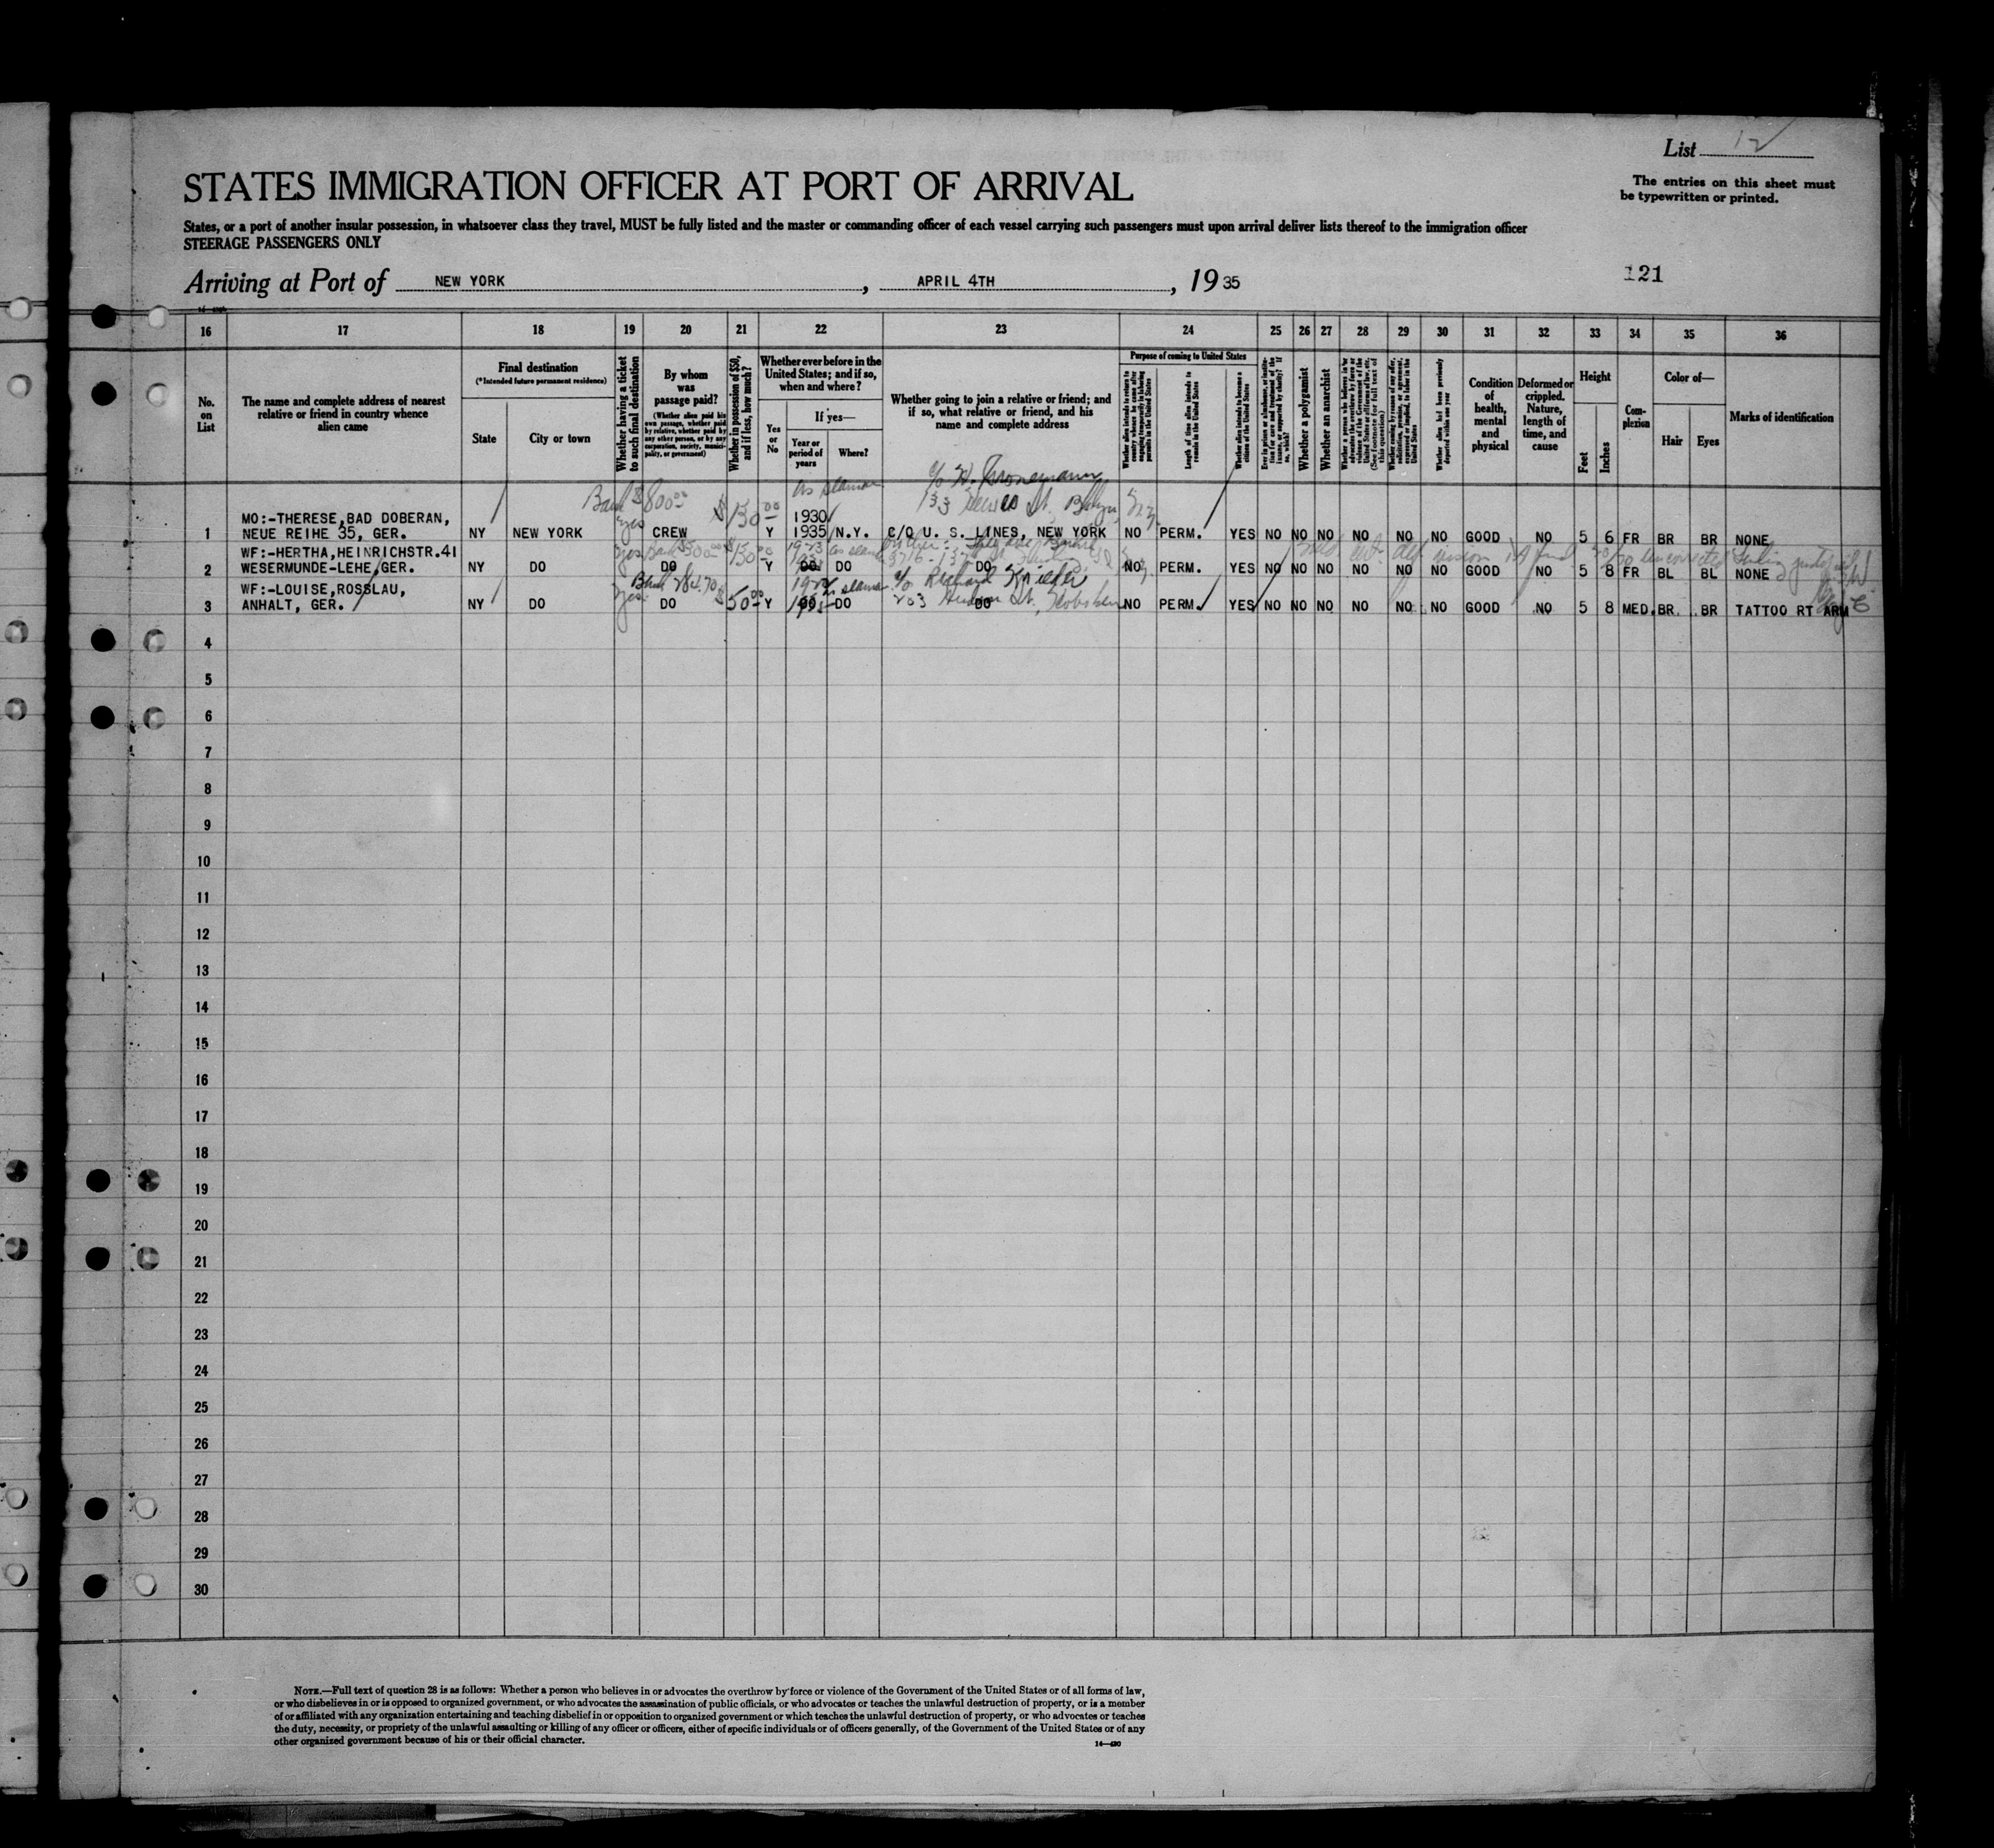 List 12
The entries on this sheet must
be typewritten or printed.
STATES IMMIGRATION OFFICER AT PORT OF ARRIVAL
States, or a port of another insular possession, in whatsoever class they travel, MUST be fully listed and the master or commanding officer of each vessel carrying such passengers must upon arrival deliver lists thereof to the immigration officer
STEERAGE PASSENGERS ONLY
Arriving at Port of NEW YORK, APRIL 4TH, 1935
121
16 17 18 19 20 21 22 23 24 25 26 27 28 29 30 31 32 33 34 35 36
No. on List
The name and complete address of nearest relative or friend in country whence alien came
Final destination
(*Intended future permanent residence)
State
City or town
Whether having a ticket to such final destination
By whom was passage paid?
(Whether alien paid his own passage, whether paid by relative, whether paid by any other person, or by any corporation, society, municipality, or government)
Whether in possession of $50, and if less, how much?
Whether ever before in the United States; and if so, when and where?
Yes or No
If yes—
Year or period of years
Where?
Whether going to join a relative or friend; and if so, what relative or friend, and his name and complete address
Purpose of coming to United States
Length of time alien intends to remain in the United States
Whether alien intends to become a citizen of the United States
Whether a polygamist
Whether an anarchist
Whether alien had been previously deported within one year
Condition of health, mental and physical
Deformed or crippled. Nature, length of time, and cause
Height
Feet
Inches
Complexion
Color of—
Hair
Eyes
Marks of identification
as seaman
Bank $800.00 $130.00
133 St. Bklyn
MO:-THERESE,BAD DOBERAN, 1930
1 NEUE REIHE 35, GER. NY NEW YORK yes CREW Y 1935 N.Y. C/O U. S. LINES, NEW YORK NO PERM. YES NO NO NO NO NO NO GOOD NO 5 6 FR BR BR NONE
WF:-HERTHA,HEINRICHSTR.41 yes
2 WESERMUNDE-LEHE,GER. NY DO DO Y DO DO DO NO PERM. YES NO NO NO NO NO NO GOOD NO 5 8 FR BL BL NONE
WF:-LOUISE,ROSSLAU, yes as seaman c/o Richard
3 ANHALT, GER. NY DO DO $50.00 Y DO DO 203 Hudson St. Hoboken DO NO PERM. YES NO NO NO NO NO NO GOOD NO 5 8 MED. BR. BR TATTOO RT ARM
4
5
6
7
8
9
10
11
12
13
14
15
16
17
18
19
20
21
22
23
24
25
26
27
28
29
30
NOTE.—Full text of question 28 is as follows: Whether a person who believes in or advocates the overthrow by force or violence of the Government of the United States or of all forms of law,
or who disbelieves in or is opposed to organized government, or who advocates the assassination of public officials, or who advocates or teaches the unlawful destruction of property, or is a member
of or affiliated with any organization entertaining and teaching disbelief in or opposition to organized government or which teaches the unlawful destruction of property, or who advocates or teaches
the duty, necessity, or propriety of the unlawful assaulting or killing of any officer or officers, either of specific individuals or of officers generally, of the Government of the United States or of any
other organized government because of his or their official character.
14—480